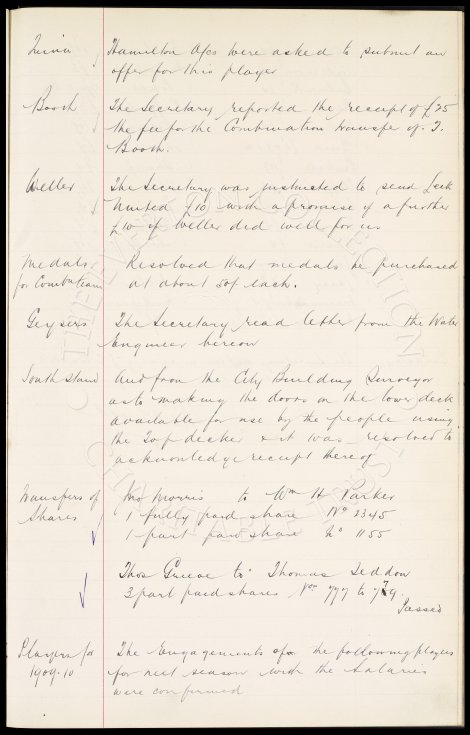 Hamilton Afcs were asked to submit an
offer for this player
Booth The Secretary reported the receipt of £75
the fee for the Combination transfer of T.
Booth.
Weller The Secretary was instructed to send Leek
United £10 with a promise of a further
£10 if Weller did well for us
Medals Resolved that medals be purchased
for Combn team at about 50/- each.
Geysers The Secretary read letter from the Water
Engineer hereon
South Stand And from the City Building Surveyor
as to making the doors on the lower deck
available for use by the people using
the Top decker & it was resolved to
acknowledge receipt thereof
Transfers of Morris to Wm H Parker
Shares 1 fully paid share No 2345
1 part paid share No 1155
Thos Greene to Thomas Seddon
3 part paid shares Nos 777 to 779.
Passed
Players for The Engagements of the following players
1909-10 for next season with the Salaries
were confirmed